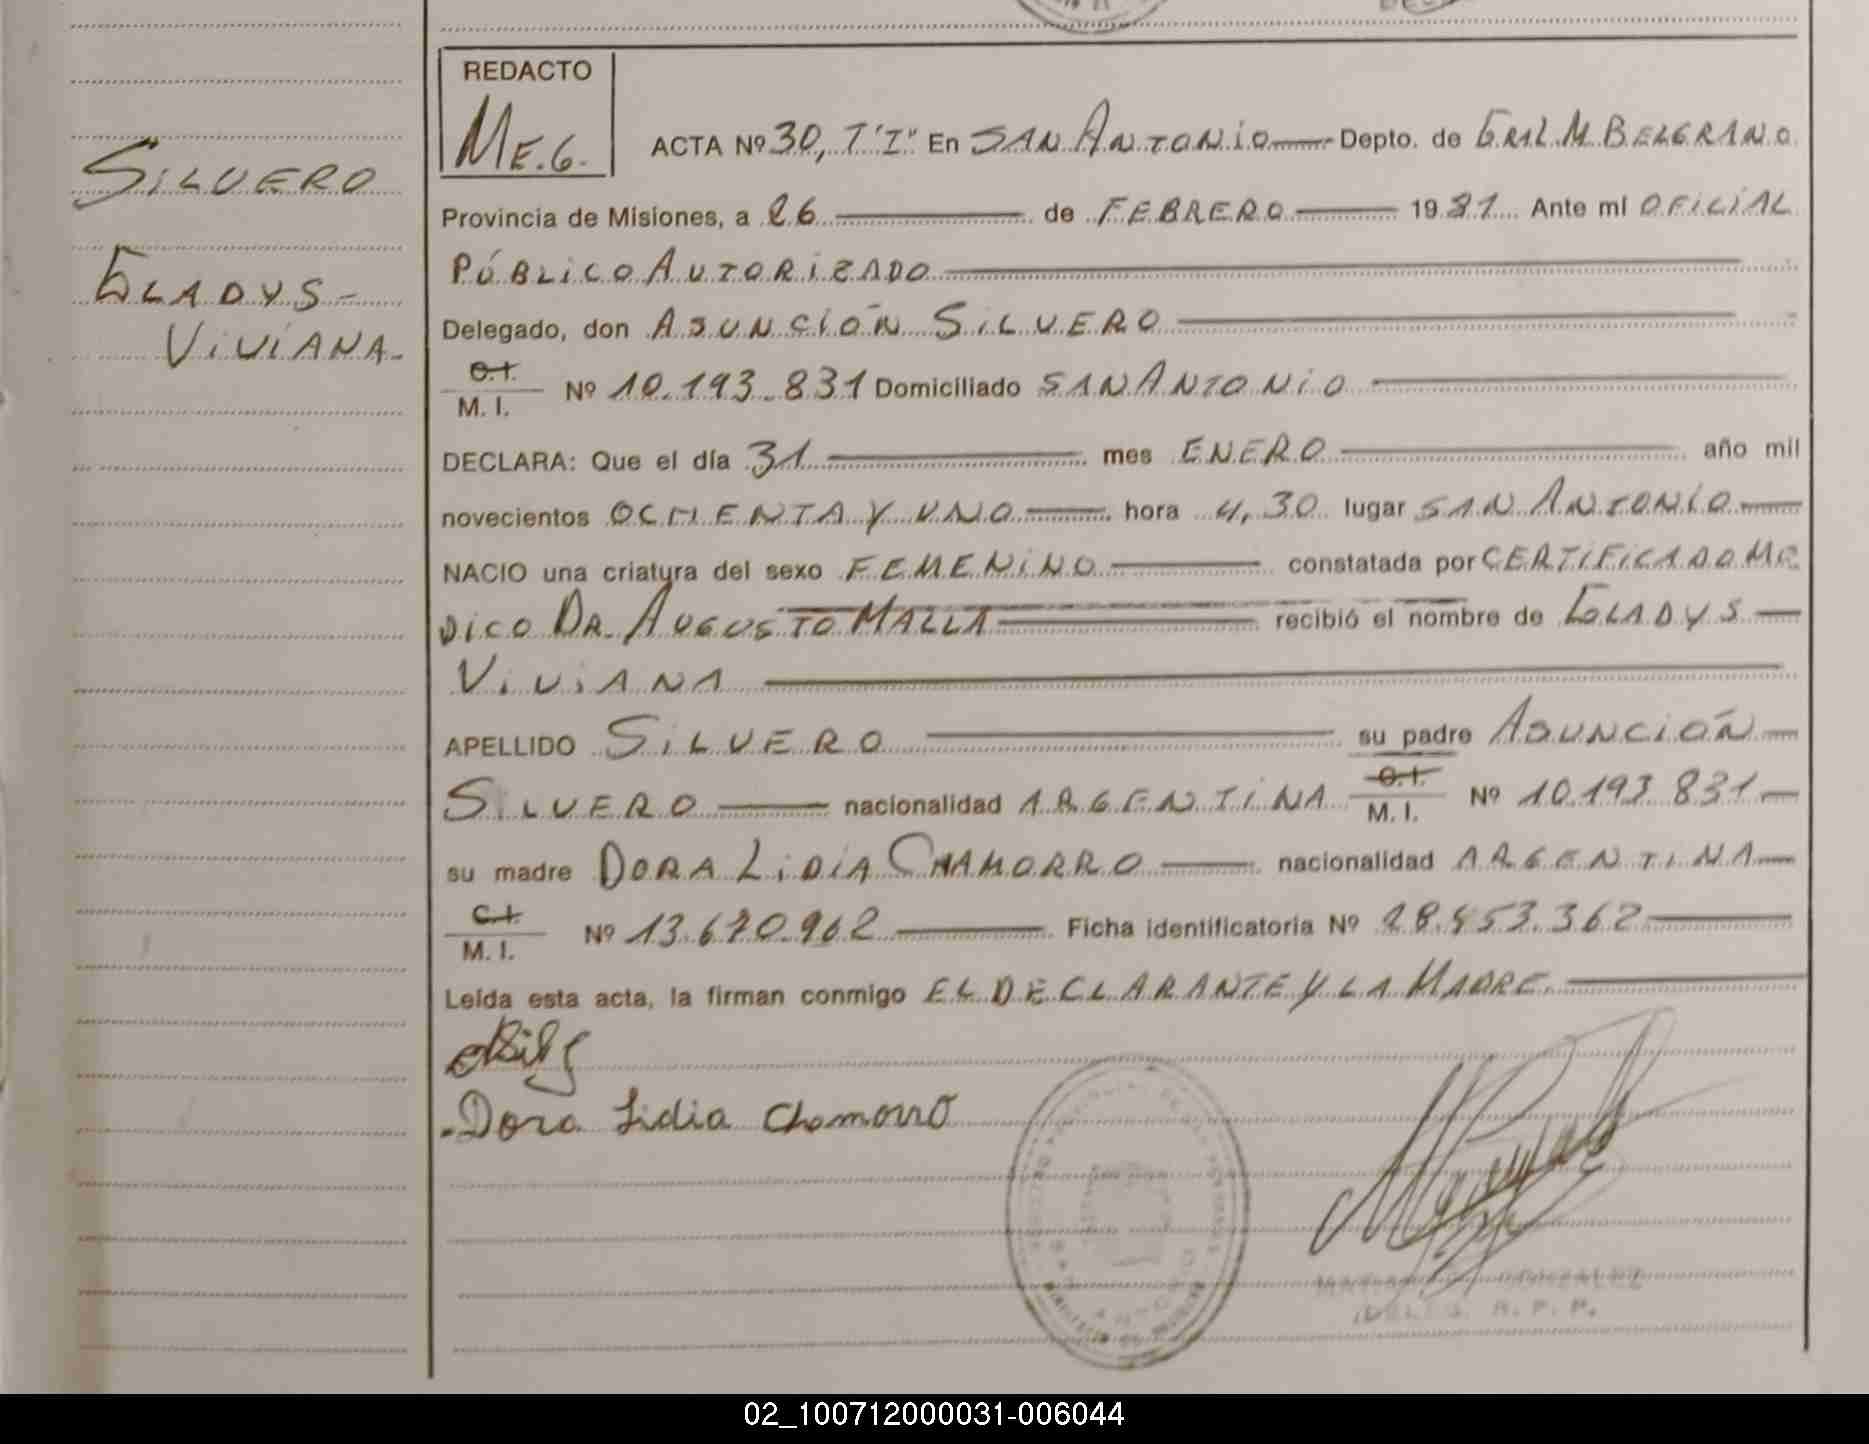 REDACTO
ME.G.
ACTA Nº 30, T"I" En SAN ANTONIO Depto. de GRAL. M. BELGRANO
SILVERO
Provincia de Misiones, a 26 de FEBRERO 1981 Ante mí OFICIAL
PÚBLICO AUTORIZADO
GLADYS-
Delegado, don ASUNCIÓN SILVERO
VIVIANA-
C.I.
M. I. Nº 10.193.831 Domiciliado SAN ANTONIO
DECLARA: Que el día 31 mes ENERO año mil
novecientos OCHENTA Y UNO hora 4,30 lugar SAN ANTONIO
NACIO una criatura del sexo FEMENINO constatada por CERTIFICADO MÉ
DICO DR. AUGUSTO MALLA recibió el nombre de GLADYS
VIVIANA
APELLIDO SILVERO su padre ASUNCIÓN
SILVERO nacionalidad ARGENTINA C.I. M. I. Nº 10.193.831
su madre DORA LIDIA CHAMORRO nacionalidad ARGENTINA
C.I.
M. I. Nº 13.670.962 Ficha identificatoria Nº 28.453.362
Leída esta acta, la firman conmigo EL DECLARANTE Y LA MADRE.
Dora Lidia Chamorro
GONZALEZ
DELEG. R. P. P.
02_100712000031-006044